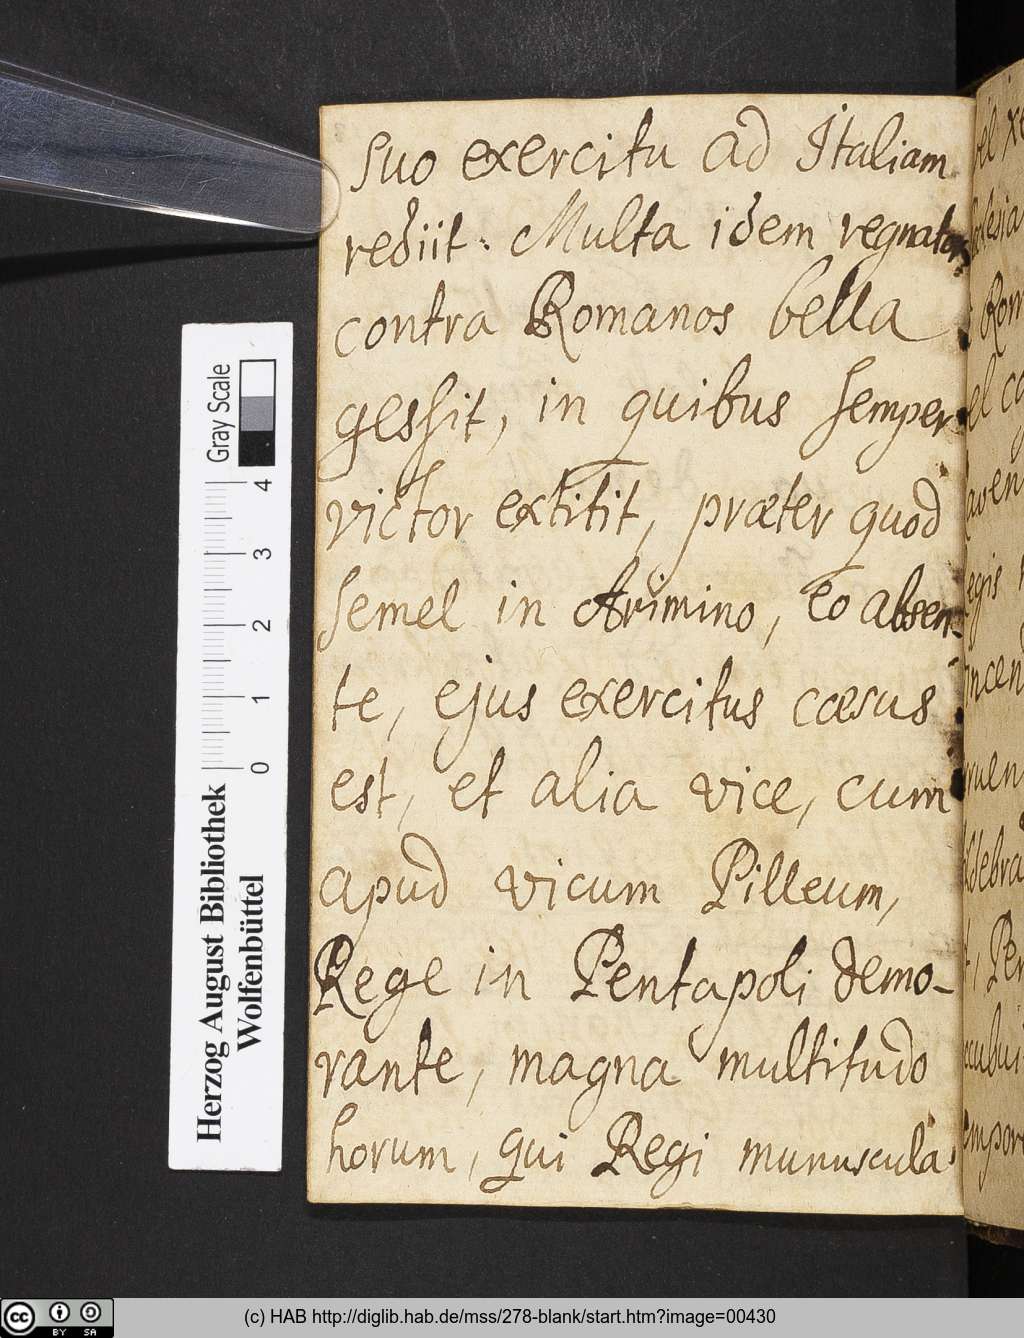 suo exercitu ad Italiam
rediit. Multa idem regnator
contra Romanos bella
gessit, in quibus semper
victor extitit, præter quod
semel in Arimino, eo absen-
te, ejus exercitus cæsus
est, et alia vice, cum
apud vicum Pilleum,
Rege in Pentapoli demo-
rante, magna multitudo
horum, qui Regi munuscula
Gray Scale
4 3 2 1 0
Herzog August Bibliothek
Wolfenbüttel
cc BY SA
(c) HAB http://diglib.hab.de/mss/278-blank/start.htm?image=00430